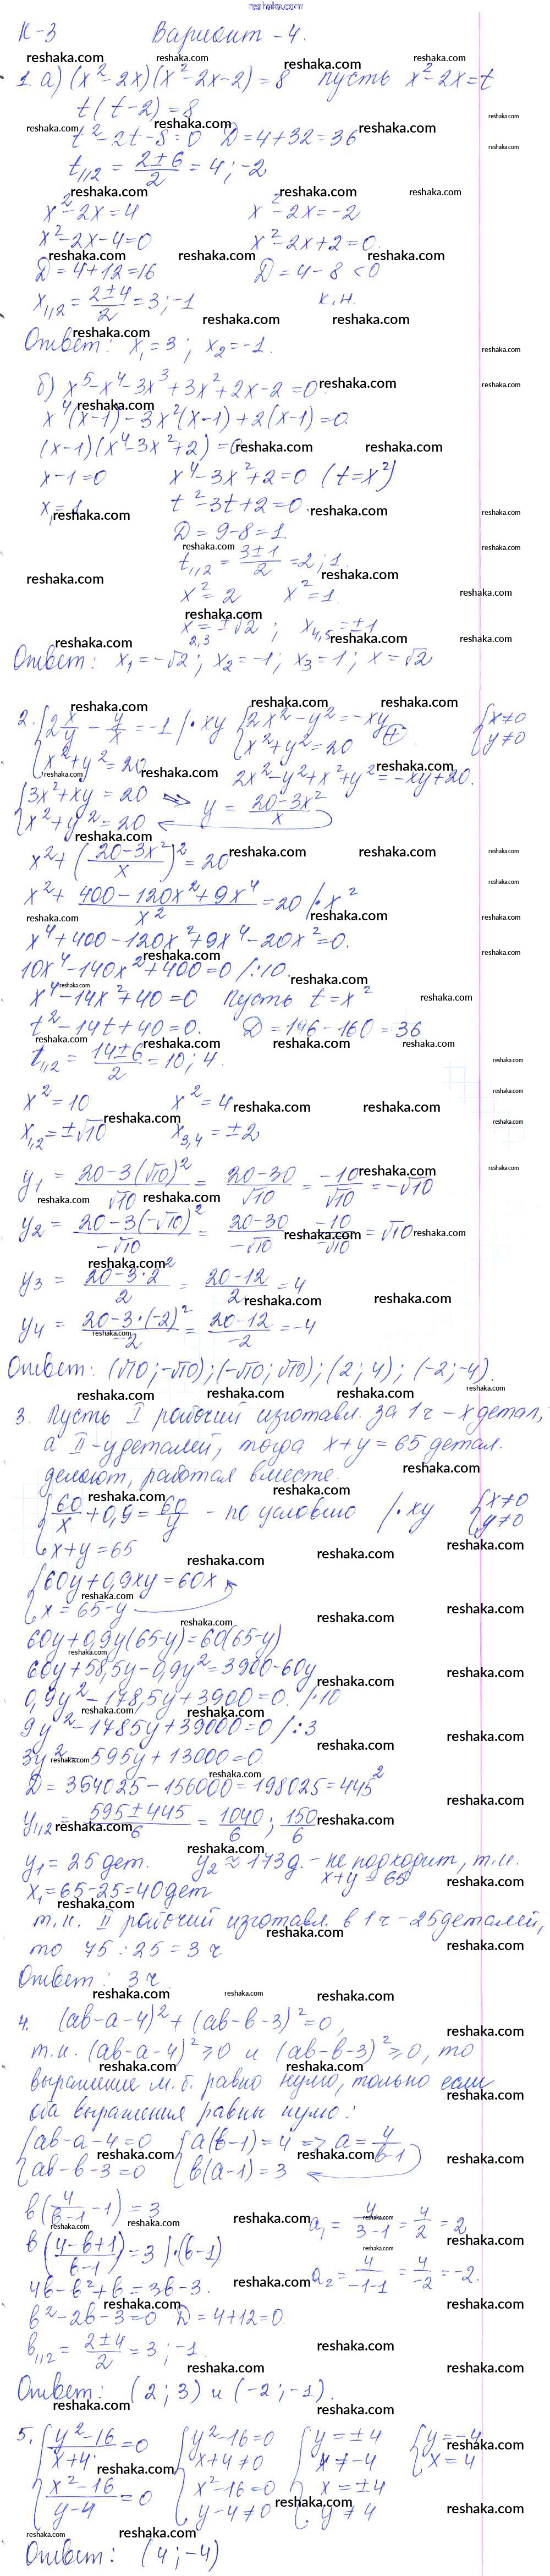 reshaka.com
К-3 Вариант-4.
1. а) (x²-2x)(x²-2x-2)=8 пусть x²-2x=t
t(t-2)=8
t²-2t-8=0 D=4+32=36
t₁,₂ = (2±6)/2 = 4; -2
x²-2x=4 x²-2x=-2
x²-2x-4=0 x²-2x+2=0.
D=4+12=16 D=4-8<0
x₁,₂ = (2±4)/2 = 3; -1 к.н.
Ответ: x₁=3; x₂=-1.
б) x⁵-x⁴-3x³+3x²+2x-2=0
x⁴(x-1)-3x²(x-1)+2(x-1)=0.
(x-1)(x⁴-3x²+2)=0
x-1=0 x⁴-3x²+2=0 (t=x²)
x₁=1 t²-3t+2=0
D=9-8=1.
t₁,₂ = (3±1)/2 = 2; 1
x²=2 x²=1
x₂,₃=±√2; x₄,₅=±1
Ответ: x₁=-√2; x₂=-1; x₃=1; x=√2
2. {2x/y - y/x = -1 |·xy {2x²-y²=-xy {x≠0
{x²+y²=20 {x²+y²=20 (+) {y≠0
2x²-y²+x²+y²=-xy+20.
{3x²+xy=20 => y = (20-3x²)/x
{x²+y²=20
x²+((20-3x²)/x)²=20
x²+(400-120x²+9x⁴)/x²=20 |·x²
x⁴+400-120x²+9x⁴-20x²=0.
10x⁴-140x²+400=0 /:10
x⁴-14x²+40=0 Пусть t=x²
t²-14t+40=0. D=196-160=36
t₁,₂ = (14±6)/2 = 10; 4.
x²=10 x²=4
x₁,₂=±√10 x₃,₄=±2
y₁ = (20-3(√10)²)/√10 = (20-30)/√10 = -10/√10 = -√10
y₂ = (20-3(-√10)²)/-√10 = (20-30)/-√10 = -10/-√10 = √10
y₃ = (20-3·2²)/2 = (20-12)/2 = 4
y₄ = (20-3·(-2)²)/-2 = (20-12)/-2 = -4
Ответ: (√10;-√10); (-√10; √10); (2; 4); (-2;-4).
3. Пусть I рабочий изготавл. за 1ч - x детал,
а II - y деталей, тогда x+y=65 детал.
делают, работая вместе.
{60/x+0,9=60/y - по условию |·xy {x≠0
{x+y=65 {y≠0
{60y+0,9xy=60x
{x=65-y
60y+0,9y(65-y)=60(65-y)
60y+58,5y-0,9y²=3900-60y
0,9y²-178,5y+3900=0. /·10
9y²-1785y+39000=0 /:3
3y²-595y+13000=0
D=354025-156000=198025=445²
y₁,₂ = (595±445)/6 = 1040/6; 150/6
y₁=25 дет. y₂≈173д. - не подходит, т.к.
x₁=65-25=40дет x+y=65
т.к. II рабочий изготавл. в 1ч - 25деталей,
то 75:25=3 ч
Ответ: 3 ч
4. (ab-a-4)²+(ab-b-3)²=0,
т.к. (ab-a-4)²≥0 и (ab-b-3)²≥0, то
выражение м.б. равно нулю, только если
оба выражения равны нулю:
{ab-a-4=0 {a(b-1)=4 => a=4/(b-1)
{ab-b-3=0 {b(a-1)=3
b(4/(b-1)-1)=3 a₁ = 4/(3-1) = 4/2 = 2
b((4-b+1)/(b-1))=3 |·(b-1)
4b-b²+b=3b-3. a₂ = 4/(-1-1) = 4/-2 = -2.
b²-2b-3=0 D=4+12=0.
b₁,₂ = (2±4)/2 = 3; -1.
Ответ: (2; 3) и (-2; -1).
5. {(y²-16)/(x+4)=0 {y²-16=0 {y=±4 {y=-4
{(x²-16)/(y-4)=0 {x+4≠0 {x≠-4 {x=4
{x²-16=0 {x=±4
{y-4≠0 {y≠4
Ответ: (4;-4)